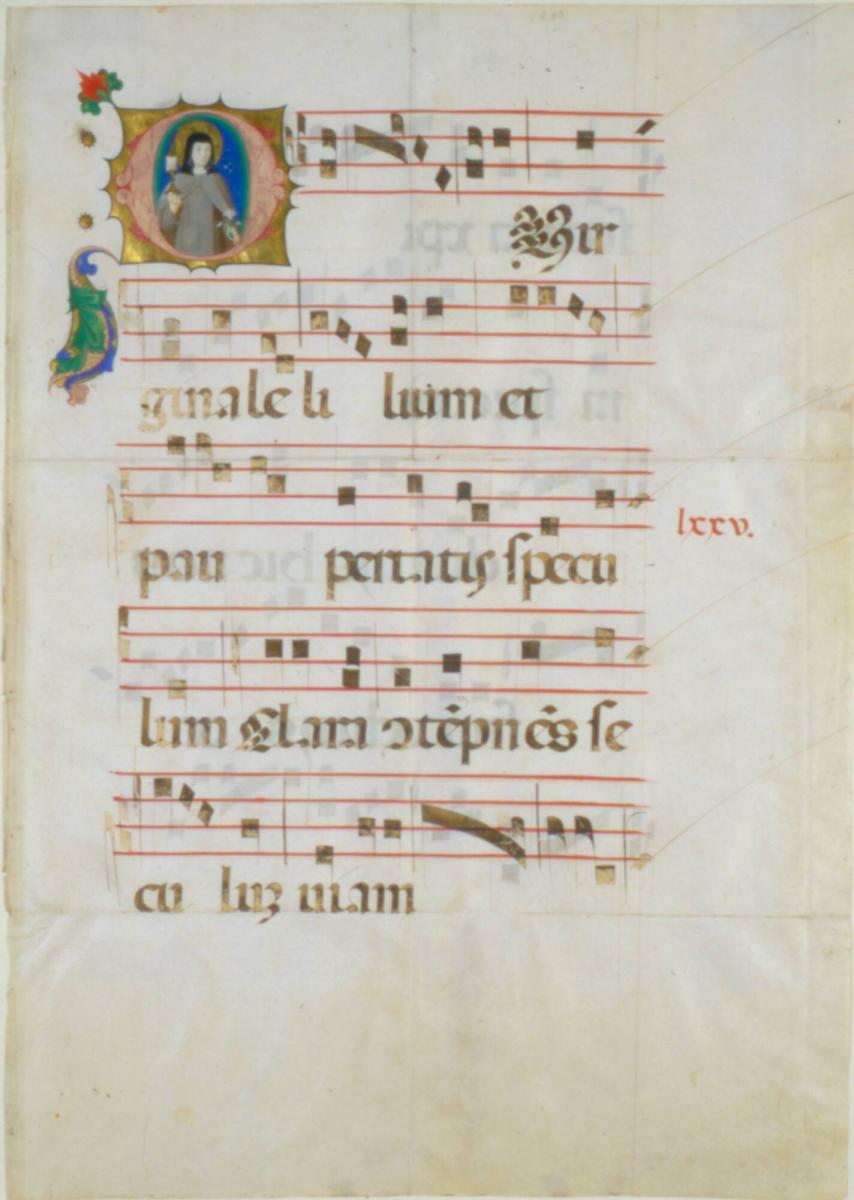 O Vir
ginale li lium et
pau pertatis specu
lxxv.
lum Clara ɔtēpnēs se
cu luꝫ uiam